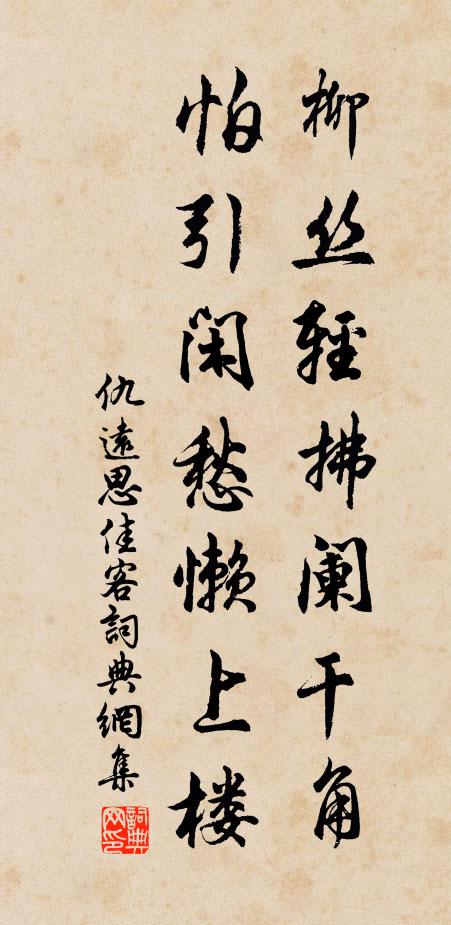 柳丝輕拂阑干角
怕引闲愁懒上楼
仇遠思佳客詞典網集
詞典网印